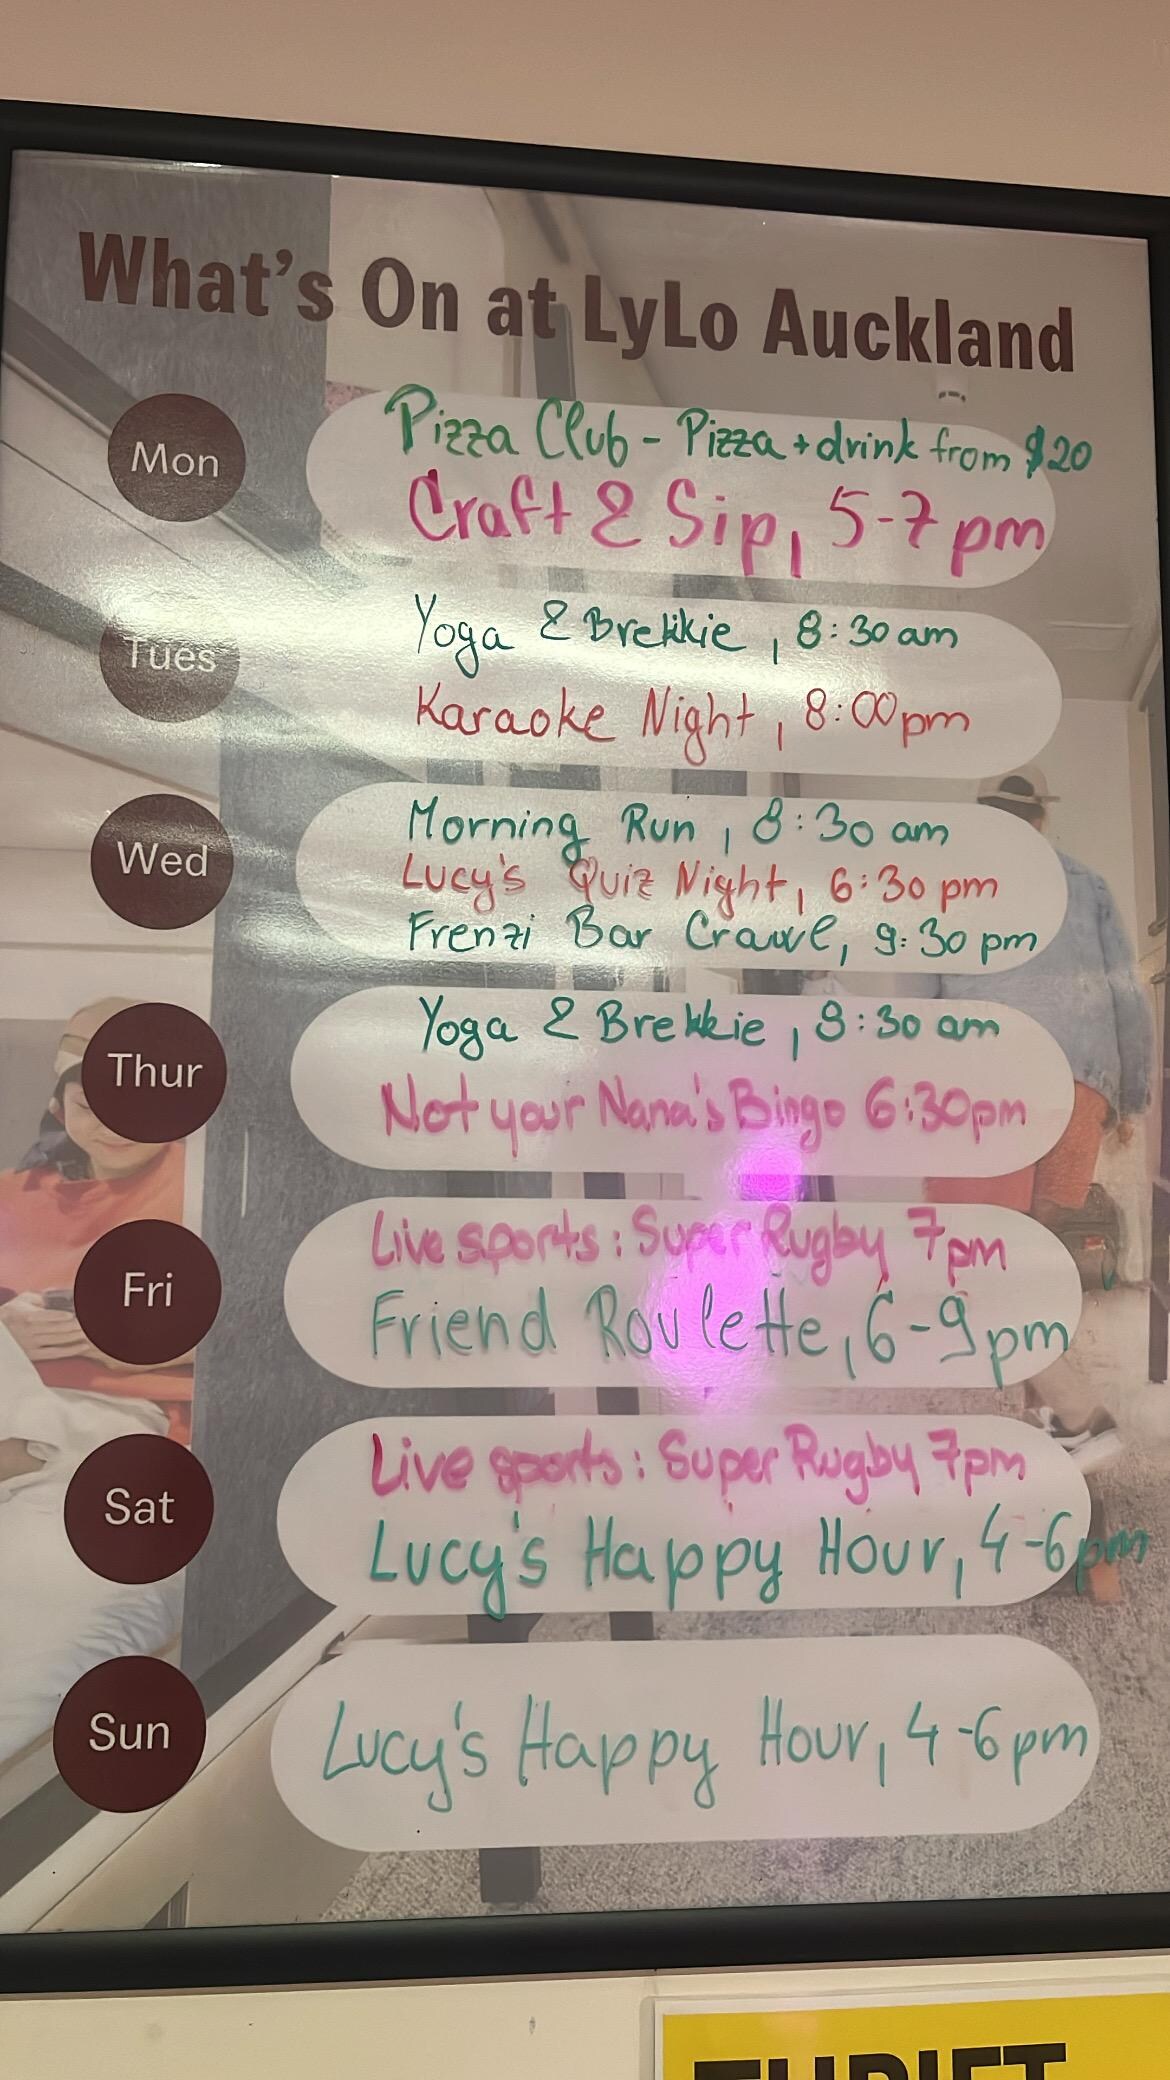 What's On at LyLo Auckland
Mon
Pizza Club - Pizza + drink from $20
Craft & Sip, 5-7pm
Tues
Yoga & Brekkie, 8:30am
Karaoke Night, 8:00pm
Wed
Morning Run, 8:30 am
Lucy's Quiz Night, 6:30 pm
Frenzi Bar Crawl, 9:30 pm
Thur
Yoga & Brekkie, 8:30 am
Not your Nana's Bingo 6:30pm
Fri
Live sports: Super Rugby 7pm
Friend Roulette, 6-9pm
Sat
Live sports: Super Rugby 7pm
Lucy's Happy Hour, 4-6pm
Sun
Lucy's Happy Hour, 4-6pm